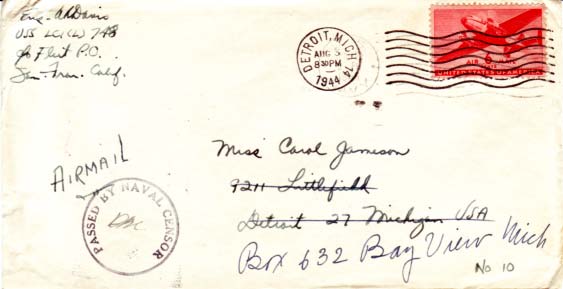 Ens. AR Davis
USS LCI (L) 748
c/o Fleet P.O.
San. Fran. Calif.
DETROIT, MICH. 14
AUG 5
8 30 PM
1944
6
AIR MAIL
UNITED STATES OF AMERICA
AIRMAIL
PASSED BY NAVAL CENSOR
Miss Carol Jamieson
9211 Littlefield
Detroit 27 Michigan USA
Box 632 Bay View Mich
No 10